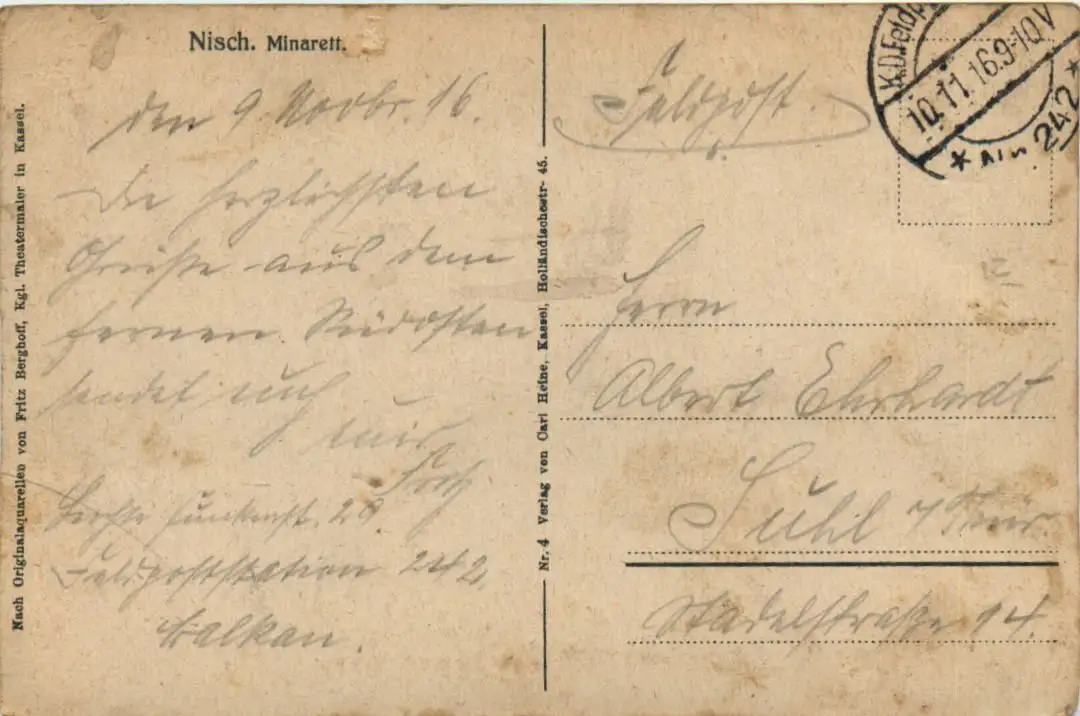 Nisch. Minarett.
den 9 Novbr. 16.
Die herzlichsten
Grüße aus dem
fernen Südosten
sendet euch
Fritz
Leichte Funkerst. 26
Feldpoststation 242,
Balkan.
Nach Originalaquarellen von Fritz Berghoff, Kgl. Theatermaler in Kassel.
Nr. 4 Verlag von Carl Heine, Kassel, Holländischestr- 45.
Feldpost.
K.D.Feldp
10.11.16.9-10V
* No. 242 *
Herrn
Albert Ehrhardt
Suhl i/Thür
Stadelstraße 14.